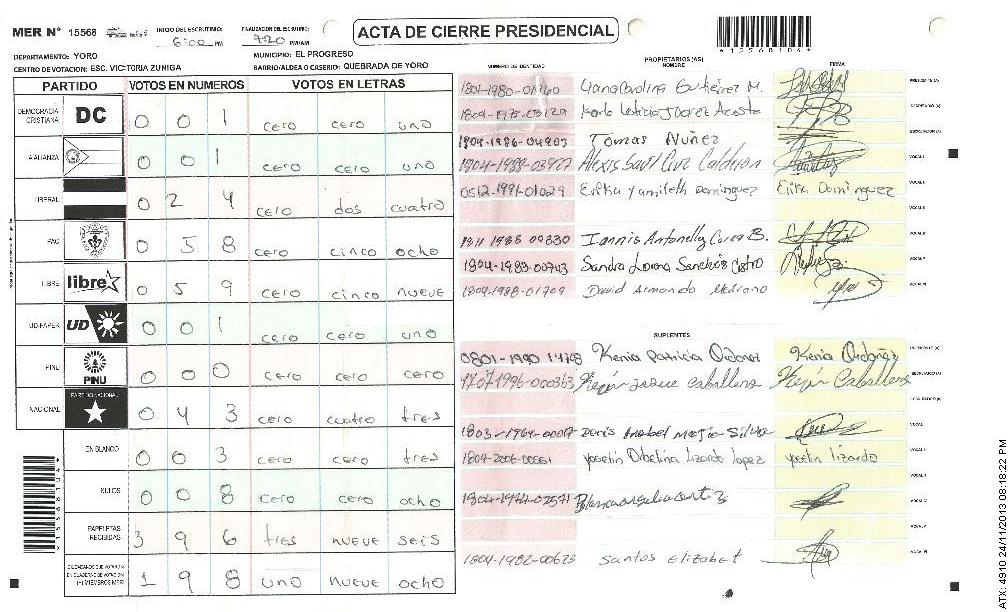 MER N° 15568 INICIO DEL ESCRUTINIO: 6:00 PM FINALIZACION DEL ESCRUTINIO: 7:20 PM/AM
ACTA DE CIERRE PRESIDENCIAL
*1556810G*
DEPARTAMENTO: YORO MUNICIPIO: EL PROGRESO
CENTRO DE VOTACION: ESC. VICTORIA ZUNIGA BARRIO/ALDEA O CASERIO: QUEBRADA DE YORO
PARTIDO VOTOS EN NUMEROS VOTOS EN LETRAS
DEMOCRACIA CRISTIANA DC 0 0 1 cero cero uno
ALIANZA 0 0 1 cero cero uno
LIBERAL 0 2 4 cero dos cuatro
PAC 0 5 8 cero cinco ocho
LIBRE libre 0 5 9 cero cinco nueve
UD-FAPER UD 0 0 1 cero cero uno
PINU PINU 0 0 0 cero cero cero
NACIONAL PARTIDO NACIONAL 0 4 3 cero cuatro tres
EN BLANCO 0 0 3 cero cero tres
NULOS 0 0 8 cero cero ocho
PAPELETAS RECIBIDAS 3 9 6 tres nueve seis
CIUDADANOS QUE VOTARON EN CUADERNO DE VOTACION (+) MIEMBROS MER 1 9 8 uno nueve ocho
PROPIETARIOS (AS)
NUMERO DE IDENTIDAD NOMBRE FIRMA
1801-1980-01760 Carolina Gutierrez M. PRESIDENTE (A)
Karla Leticia Juarez Acosta SECRETARIO (A)
1804-1986-04903 Tomas Nuñez ESCRUTADOR (A)
1804-1988-03977 Alexis Saul Cruz Calderon VOCAL I
0512-1991-01029 Erika Yamileth Dominguez Erika Dominguez VOCAL II
VOCAL III
1811-1988-00830 Iannis Antonella B. VOCAL IV
1804-1983-00743 Sandra Lorena Sanchez Castro VOCAL V
1804-1988-01709 David Armando Medrano VOCAL VI
SUPLENTES
0801-1990 Kenia Patricia Ordoñez Kenia Ordoñez PRESIDENTE (A)
1707-1996-000363 Caballero Caballero SECRETARIO (A)
ESCRUTADOR (A)
1803-1964-00017 Doris Anabel Mejia Silva VOCAL I
1804-2006-00561 Yoselin Lizardo Lopez Yoselin Lizardo VOCAL II
1804-1974-02571
1804-1982-00673 Santos Elizabet
ATX: 4910 24/11/2013 08:18:22 PM